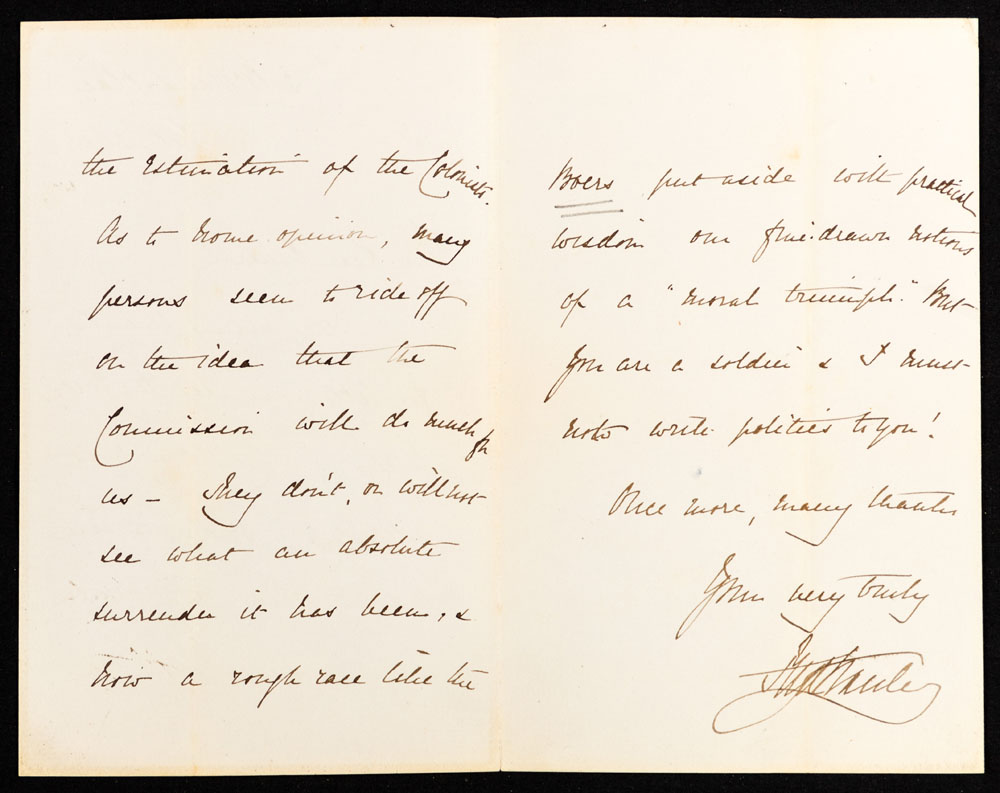 the estimation of the Colonists.
As to home opinion, many
persons seem to ride off
on the idea that the
Commission will do much for
us - They don't, or will not
see what an absolute
surrender it has been, &
how a rough race like the
Boers put aside with practical
wisdom our fine-drawn notions
of a "moral triumph." But
you are a soldier & I must
not write politics to you!
Once more, many thanks
Yours very truly